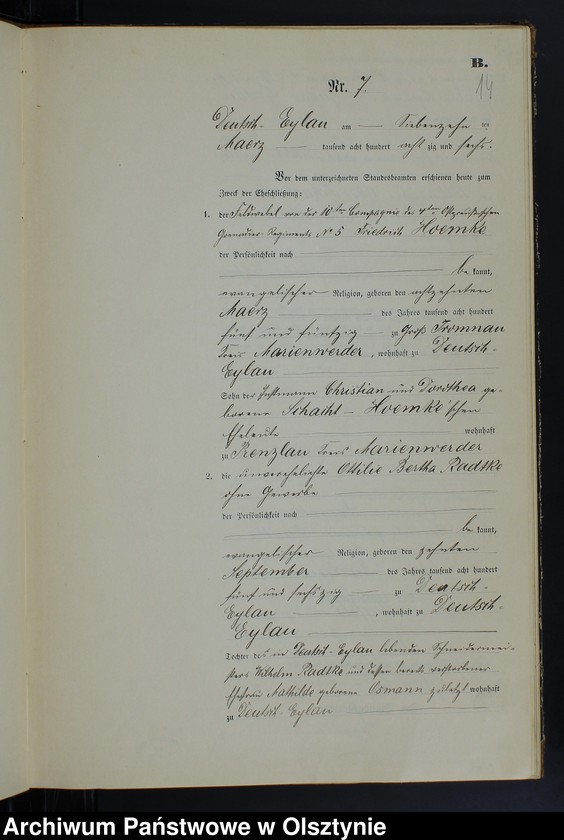 B.
14
Nr. 7.
Deutsch-Eylau am Siebenzehn ten
Maerz tausend acht hundert acht zig und sechs.
Vor dem unterzeichneten Standesbeamten erschienen heute zum
Zweck der Eheschließung:
1. der Feldwebel von der 10ten Compagnie des 4ten Ostpreußischen
Grenadier-Regiments No 5 Friedrich Hoemke
der Persönlichkeit nach
be kannt,
evangelischer Religion, geboren den achtzehnten
Maerz des Jahres tausend acht hundert
fünf und fünfzig zu Groß Tromnau
Kreis Marienwerder, wohnhaft zu Deutsch-
Eylau
Sohn der Instmann Christian und Dorothea ge-
borene Schacht - Hoemke'schen
Eheleute wohnhaft
zu Renzlau Kreis Marienwerder
2. die unverehelichte Ottilie Bertha Radtke
ohne Gewerbe
der Persönlichkeit nach
be kannt,
evangelischer Religion, geboren den zehnten
September des Jahres tausend acht hundert
fünf und sechszig zu Deutsch-
Eylau, wohnhaft zu Deutsch-
Eylau
Tochter des in Deutsch-Eylau lebenden Schneidermei-
sters Wilhelm Radtke und dessen bereits verstorbener
Ehefrau Mathilde geborene Osmann zuletzt wohnhaft
zu Deutsch-Eylau
Archiwum Państwowe w Olsztynie